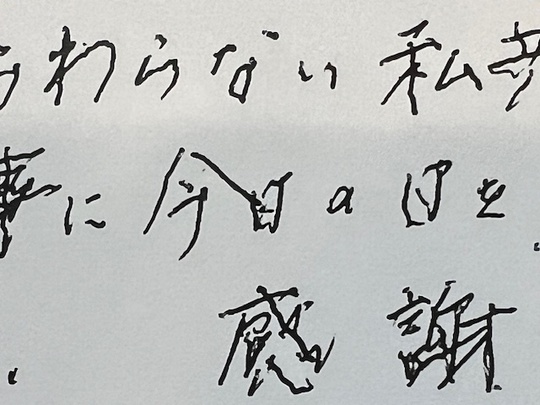 わらない私
事に今日の日を
感謝